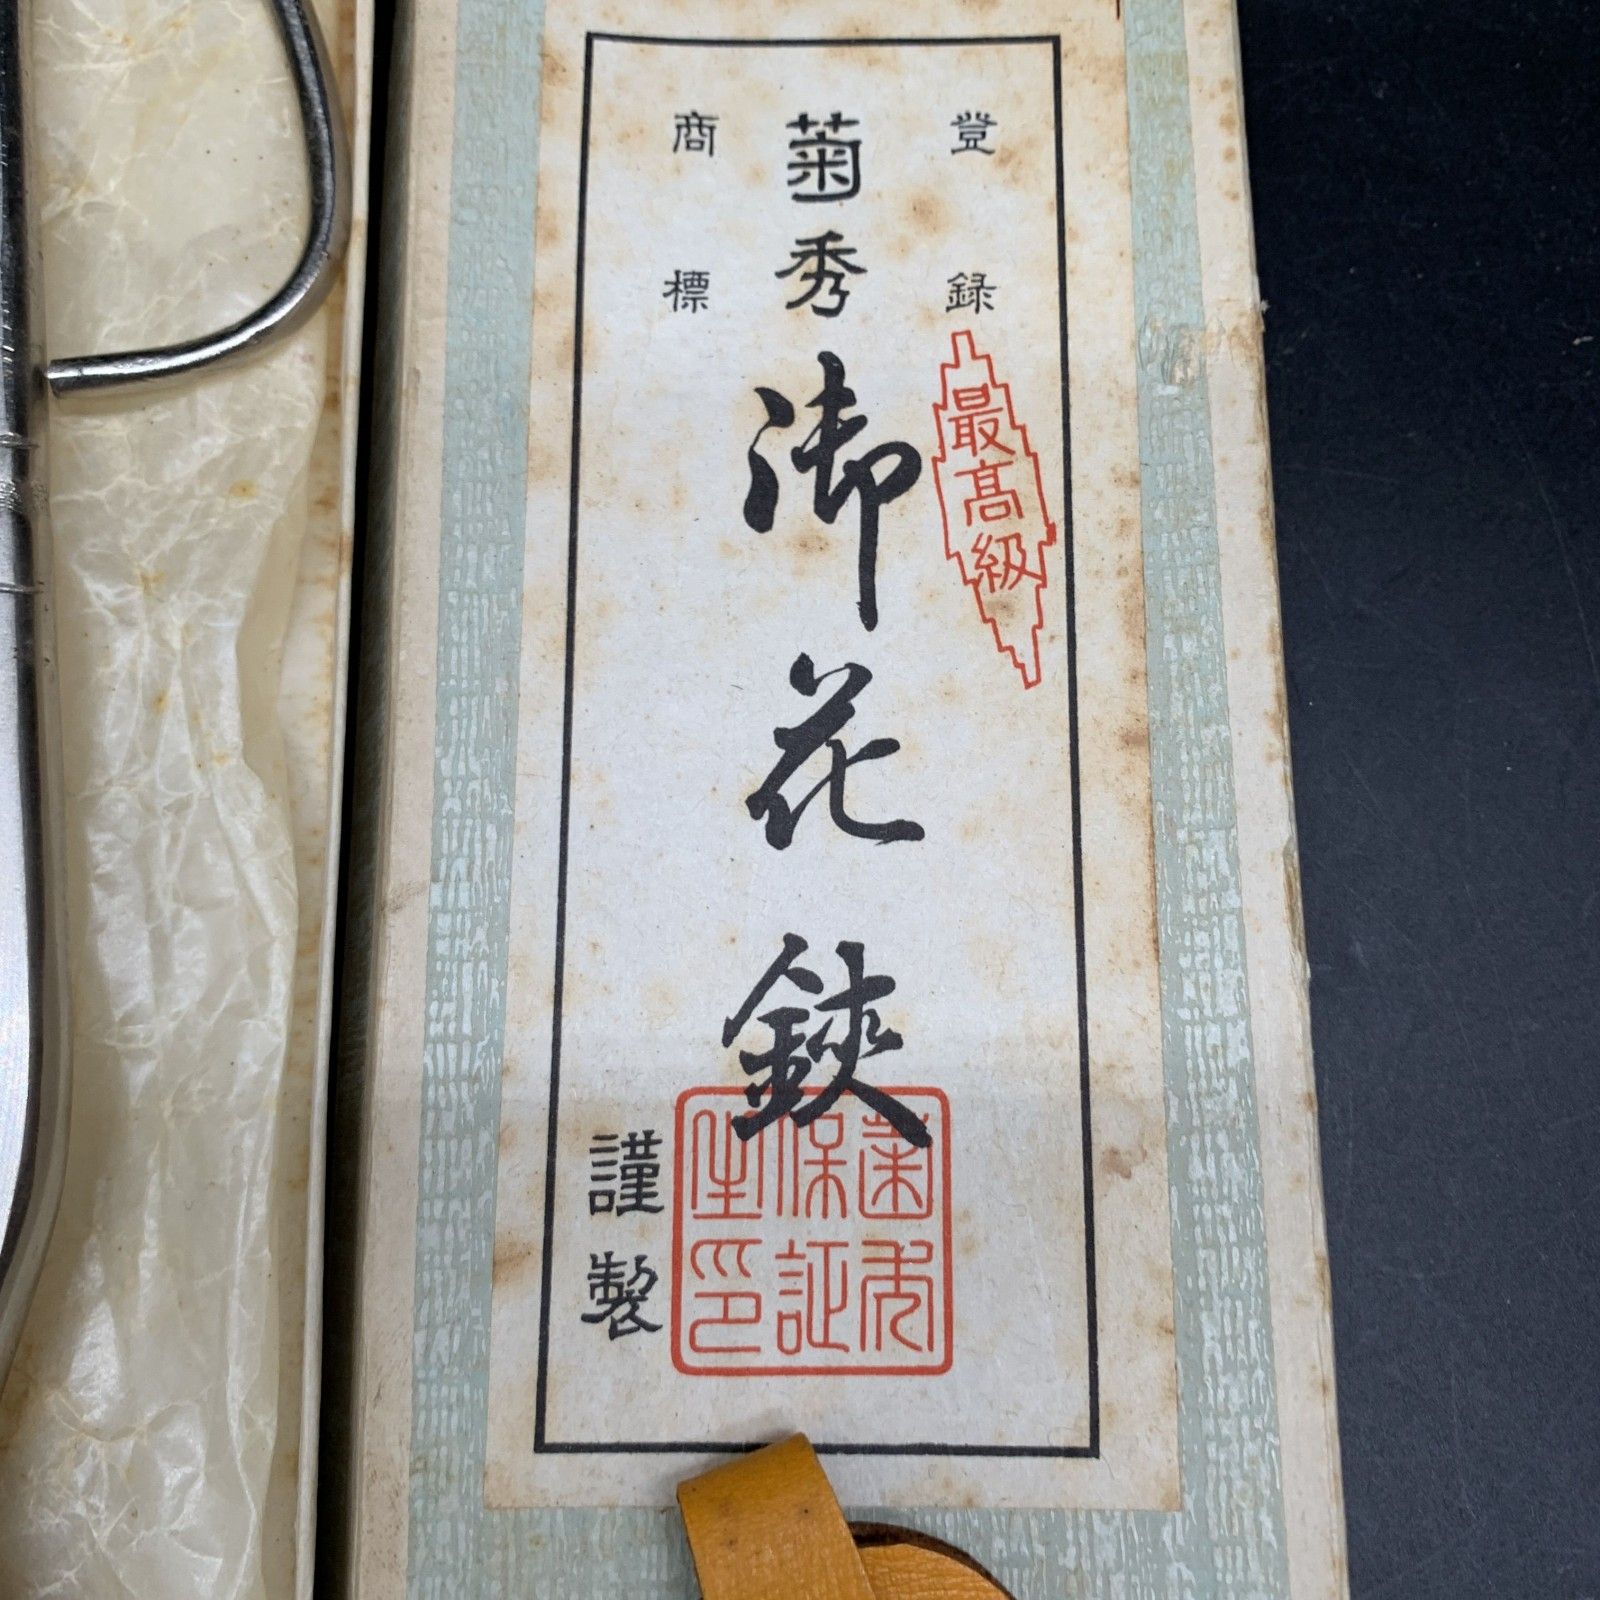 登録
最高級
菊秀
御花鋏
商標
謹製
菊秀
保証
之印